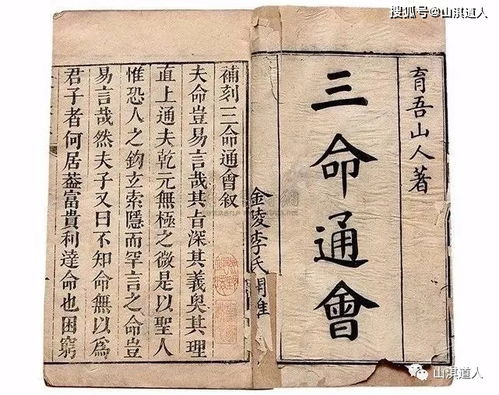 搜狐号@山淇道人
育吾山人著
三命通會
金陵李氏
補刻三命通會叙
夫命豈易言哉其旨深其義奥其理
直上通夫乾元無極之微是以聖人
惟恐人之鈎玄索隱而罕言之命豈
易言哉然夫子又曰不知命無以爲
君子者何居葢富貴利達命也困窮
山淇道人